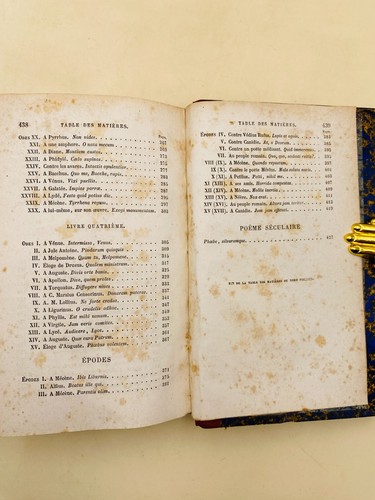 438 TABLE DES MATIÈRES.
ODES XX. A Pyrrhus, Non vides
XXI. A une amphore, O nata mecum
XXII. A Diane, Montium custos
XXIII. A Phidylé, Cœlo supinas
XXIV. Contre les avares, Intactis opulentior
XXV. A Bacchus, Quo me, Bacche, rapis
XXVI. A Vénus, Vixi puellis
XXVII. A Galatée, Impios parræ
XXVIII. A Lydé, Festo quid potius die
XXIX. A Mécène, Tyrrhena regum
XXX. A lui-même, sur son œuvre, Exegi monumentum
LIVRE QUATRIÈME.
ODES I. A Vénus, Intermissa, Venus
II. A Jule Antoine, Pindarum quisquis
III. A Melpomène, Quem tu, Melpomene
IV. Éloge de Drusus, Qualem ministrum
V. A Auguste, Divis orte bonis
VI. A Apollon, Dive, quem proles
VII. A Torquatus, Diffugere nives
VIII. A C. Marcius Censorinus, Donarem pateras
IX. A M. Lollius, Ne forte credas
X. A Ligurinus, O crudelis adhuc
XI. A Phyllis, Est mihi nonum
XII. A Virgile, Jam veris comites
XIII. A Lycé, Audivere, Lyce
XIV. A Auguste, Quæ cura Patrum
XV. Éloge d'Auguste, Phœbus volentem
ÉPODES
ÉPODES I. A Mécène, Ibis Liburnis
II. Alfius, Beatus ille qui
III. A Mécène, Parentis olim
TABLE DES MATIÈRES. 439
ÉPODES IV. Contre Védius Rufus, Lupis et agnis
V. Contre Canidie, At, o Deorum
VI. Contre un poëte médisant, Quid immerentes
VII. Au peuple romain, Quo, quo, scelesti ruitis
VIII (IX). A Mécène, Quando repostum
IX (X). Contre le poëte Mævius, Mala soluta navis
X (XI). A Pettius, Petti, nihil me
XI (XIII). A ses amis, Horrida tempestas
XII (XIV). A Mécène, Mollis inertia
XIII (XV). A Néère, Nox erat
XIV (XVI). Au peuple romain, Altera jam teritur
XV (XVII). A Canidie, Jam jam efficaci
POËME SÉCULAIRE
Phœbe, silvarumque 427
FIN DE LA TABLE DES MATIÈRES DU TOME PREMIER.